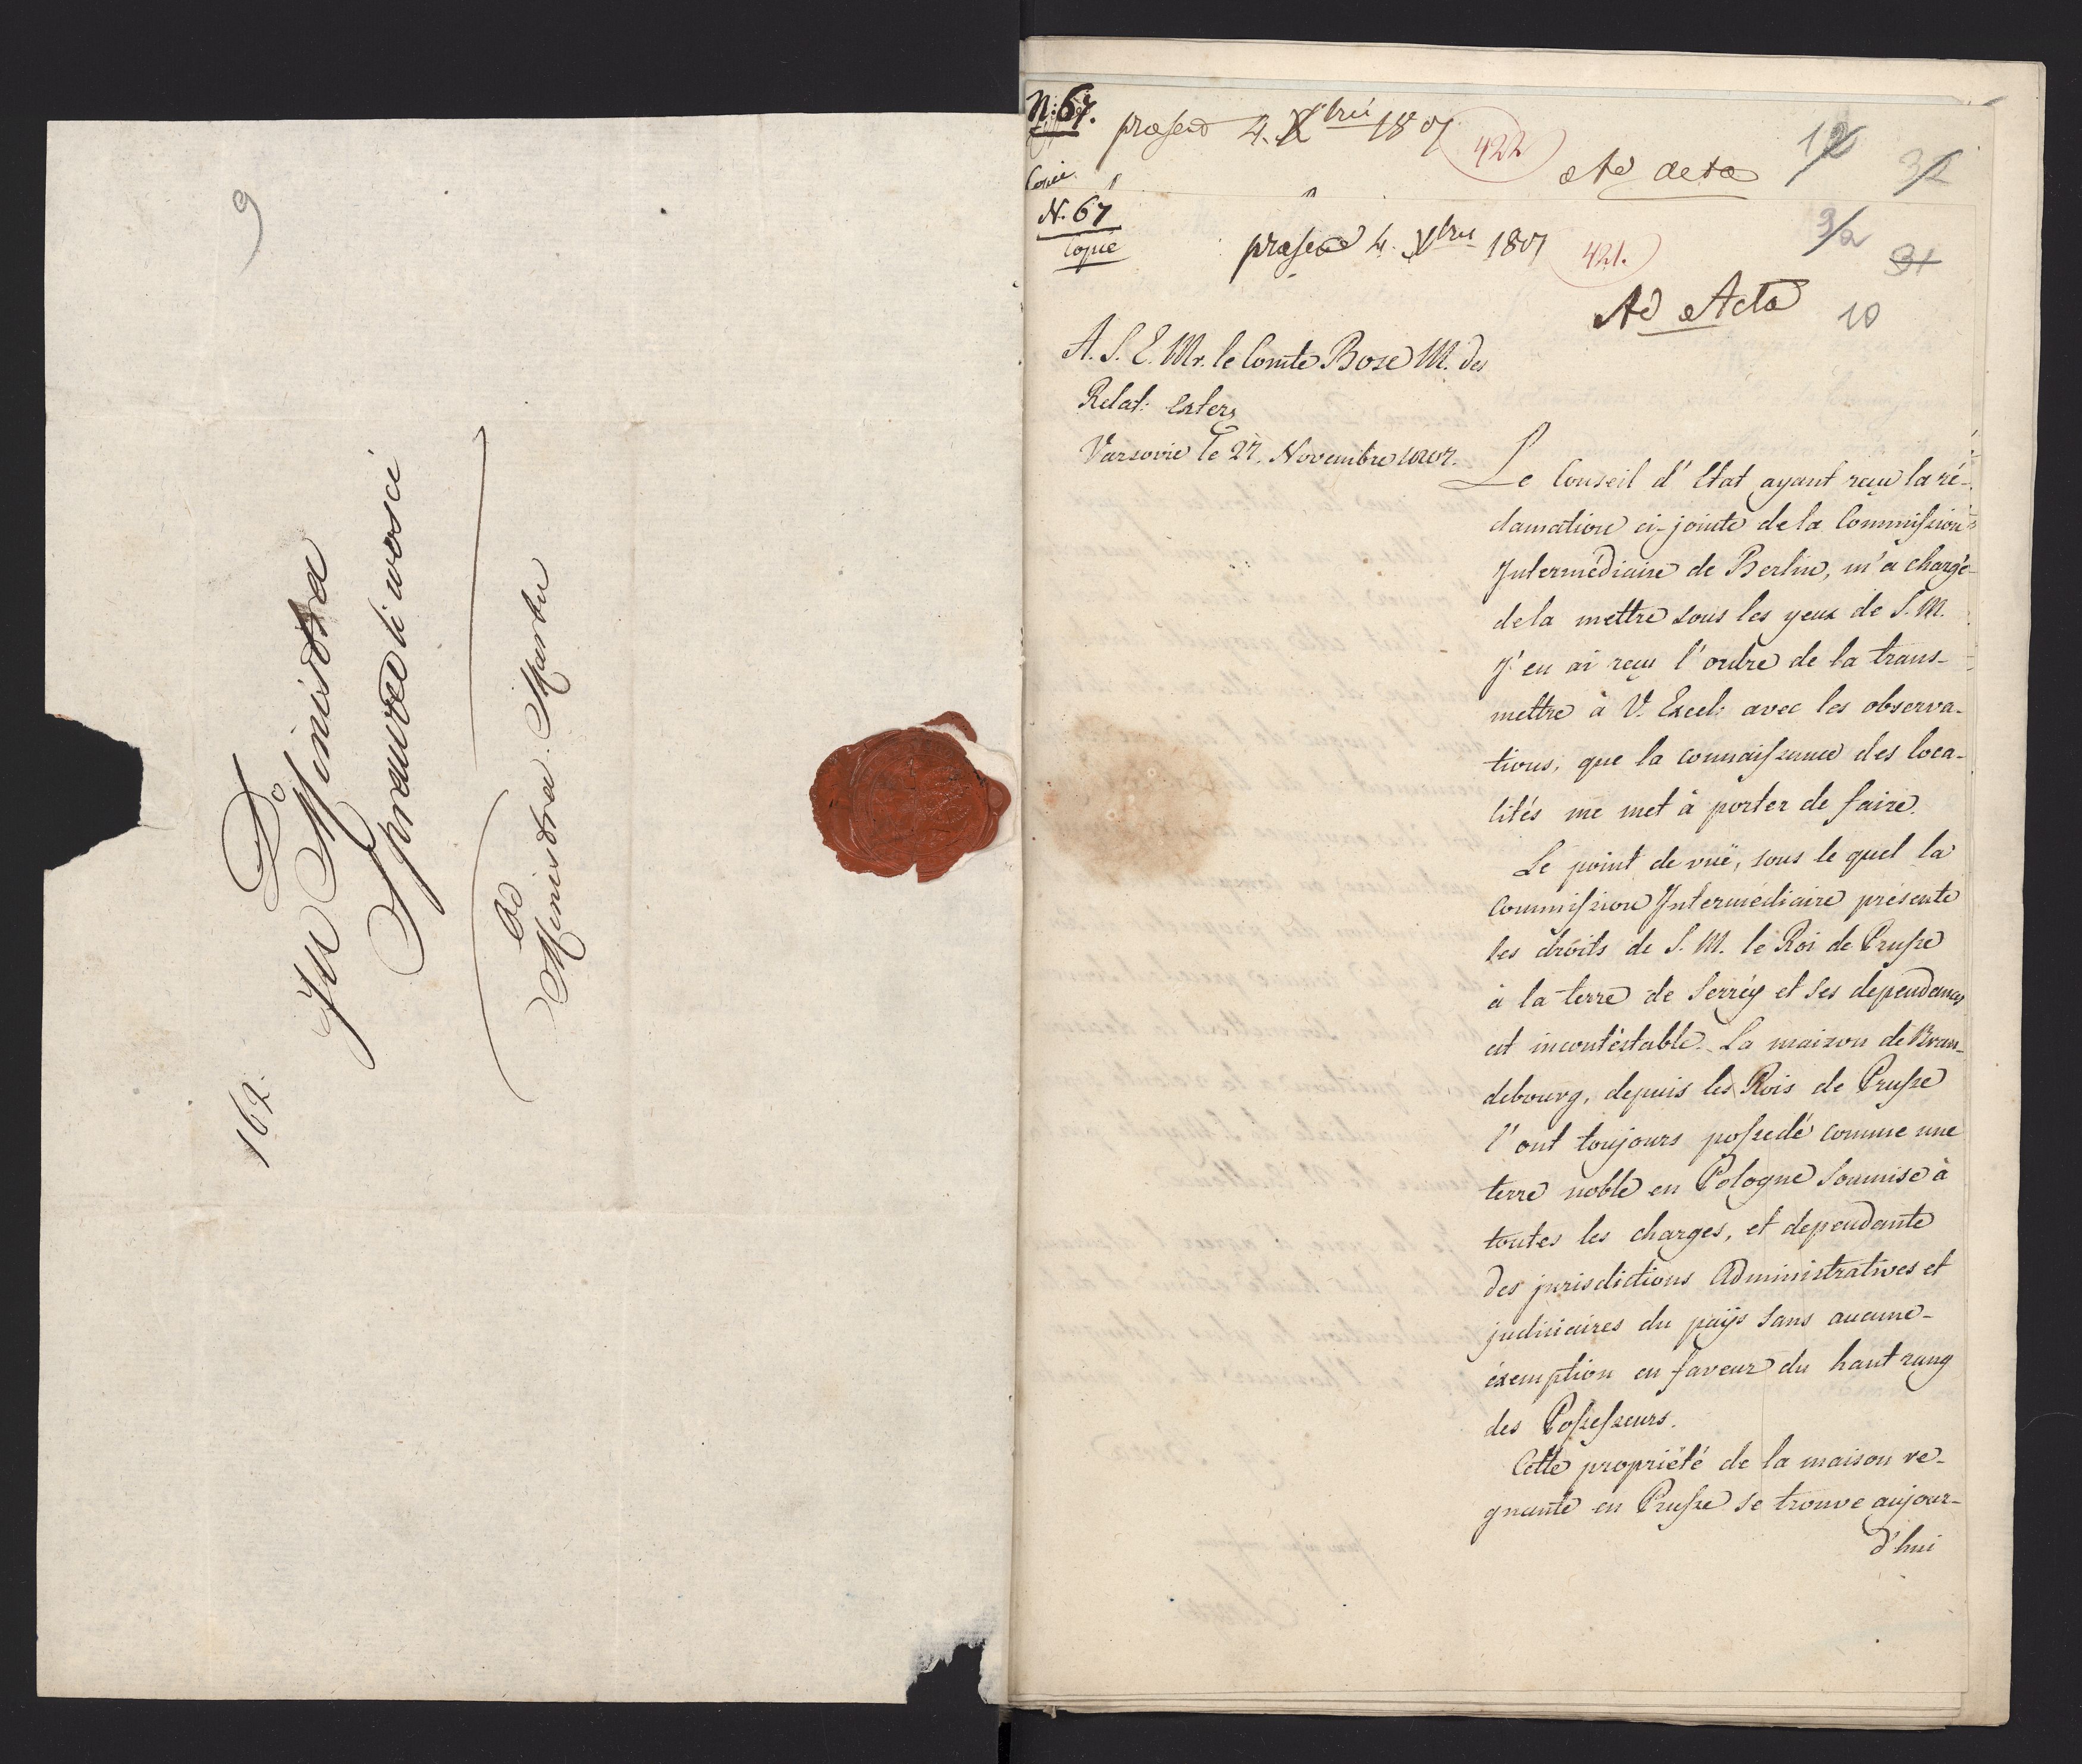 9
162.
Do
JW Ministra
Sprawiedliwosci
od
Ministra Skarbu
N: 67.
præsent 4. Xbris 1807
422
Ad acta
12
32
Copie
N. 67
Copie
præsent 4. Xbris 1807
421.
3/2
31
Ad Acta
10
A. S. E. Mr. le Comte Bose M. des
Relat: Exter,
Varsovie le 27. Novembre 1807.
Le Conseil d'Etat ayant reçu la ré-
clamation ci-jointe de la Commission
Intermédiaire de Berlin, m'a chargé
de la mettre sous les yeux de S. M.
J'en ai reçu l'ordre de la trans-
mettre à V. Excel: avec les observa-
tions, que la connaissance des loca-
lités me met à porter de faire.
Le point de vuë, sous le quel la
Commission Intermédiaire présente
les droits de S. M. le Roi de Prusse
à la terre de Serréy et ses dependances
est incontéstable. La maison de Bran-
debourg, depuis les Rois de Prusse
l'ont toujours possedé comme une
terre noble en Pologne soumise à
toutes les charges, et dependante
des jurisdictions administratives et
judiciaires du païjs sans aucune-
éxemption en faveur du haut rang
des Possesseurs.
Cette propriété de la maison re-
gnante en Prusse se trouve aujour-
d'hui